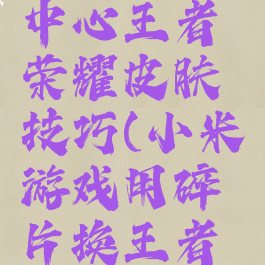 中心王者
荣耀皮肤
技巧(小米
游戏用碎
片换王者